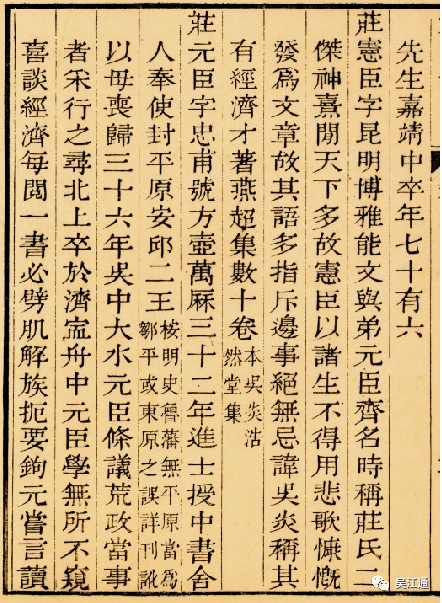 先生嘉靖中卒年七十有六
莊憲臣字昆明博雅能文與弟元臣齊名時稱莊氏二
傑神熹閒天下多故憲臣以諸生不得用悲歌慷慨
發爲文章故其語多指斥邊事絕無忌諱吳炎稱其
有經濟才著燕超集數十卷本吳炎浩然堂集
莊元臣字忠甫號方壺萬厤三十二年進士授中書舍
人奉使封平原安邱二王按明史魯藩無平原當爲鄒平或東原之誤詳刊訛
以母喪歸三十六年吳中大水元臣條議荒政當事
者采行之尋北上卒於濟寍舟中元臣學無所不窺
喜談經濟每閱一書必劈肌解族扼要鉤元嘗言讀
吴江通